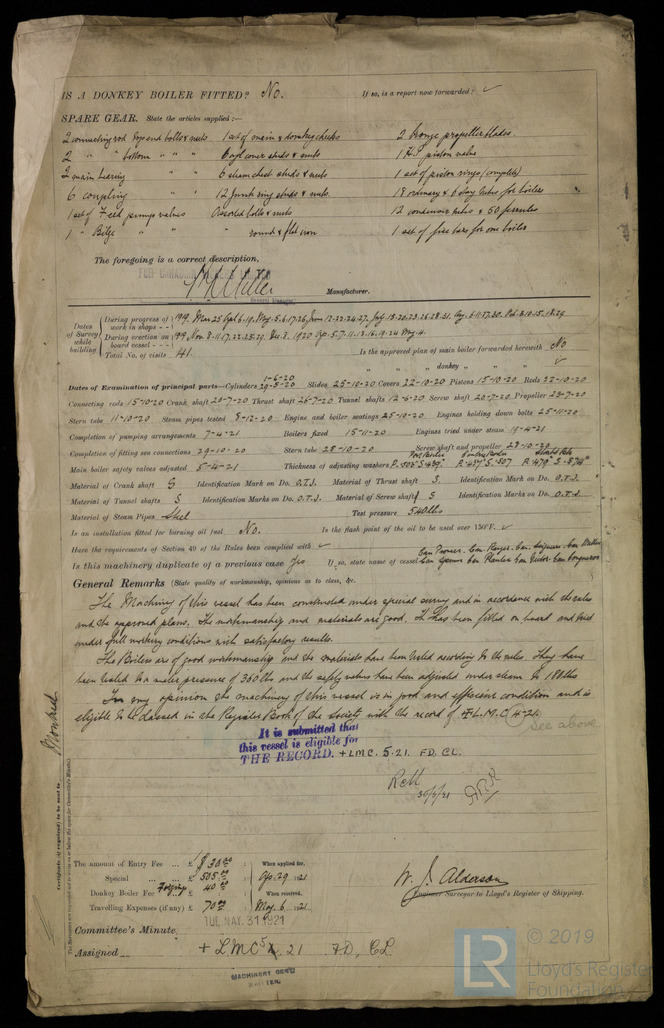 IS A DONKEY BOILER FITTED? No. If so, is a report now forwarded? ✓
SPARE GEAR. State the articles supplied :—
2 connecting rod top end bolts & nuts 1 set of main & donkey checks 2 bronze propeller blades
2 " " bottom " " " 6 cyl cover studs & nuts 1 H.P. piston valve
2 main bearing " " 6 steam chest studs & nuts 1 set of piston rings (complete)
6 coupling " " 12 Junk ring studs & nuts 18 ordinary & 6 stay tubes for boilers
1 set of Feed pump valves Assorted bolts & nuts 12 condenser tubes & 50 ferrules
1 " Bilge " " " round & flat iron 1 set of fire bars for one boiler
The foregoing is a correct description,
Manufacturer.
General Manager.
Dates of Survey while building
During progress of work in shops - - 1919. Mar 25 Apl 6.19. May 5.6.17.26. June 12.22.24.27. July 15.20.23.26.28.31. Aug. 6.11.27.30.
During erection on board vessel - - - Nov. 8.11.17.22.25.29. Dec. 8. 1920 Ap. 5.7.11.13.16.19.24 May 4.
Total No. of visits 41. Is the approved plan of main boiler forwarded herewith No
" " " donkey " " " ✓
1-6-20
Dates of Examination of principal parts—Cylinders 29-5-20 Slides 25-10-20 Covers 22-10-20 Pistons 15-10-20 Rods 22-10-20
Connecting rods 15-10-20 Crank shaft 20-7-20 Thrust shaft 26-7-20 Tunnel shafts 12-6-20 Screw shaft 20-7-20 Propeller 29-9-20
Stern tube 11-10-20 Steam pipes tested 8-12-20 Engine and boiler seatings 25-10-20 Engines holding down bolts 25-11-20
Completion of pumping arrangements 7-4-21 Boilers fixed 15-11-20 Engines tried under steam 19-4-21
Completion of fitting sea connections 29-10-20 Stern tube 28-10-20 Screw shaft and propeller 29-10-20
Port Boiler Centre Boiler Starbd Boiler
Main boiler safety valves adjusted 5-4-21 Thickness of adjusting washers
Material of Crank shaft S Identification Mark on Do. O.T.J. Material of Thrust shaft S. Identification Mark on Do. O.T.J.
Material of Tunnel shafts S Identification Marks on Do. O.T.J. Material of Screw shafts S Identification Marks on Do. O.T.J.
Material of Steam Pipes Steel Test pressure 540 lbs
Is an installation fitted for burning oil fuel No. Is the flash point of the oil to be used over 150°F. ✓
Have the requirements of Section 49 of the Rules been complied with ✓
Can Pioneer. Can. Ranger. Can. Seigneur. Can Miller
Is this machinery duplicate of a previous case Yes If so, state name of vessel Can Gunner Can Planter Can Victor Can Conqueror
General Remarks (State quality of workmanship, opinions as to class, &c.
The Machinery of this vessel has been constructed under special survey and in accordance with the rules
and the approved plans. The workmanship and materials are good. It has been fitted on board and tried
under full working conditions with satisfactory results.
The Boilers are of good workmanship and the materials have been tested according to the rules. They have
been tested to a water pressure of 360 lbs and the safety valves have been adjusted under steam to 185 lbs
In my opinion the machinery of this vessel is in good and efficient condition and is
eligible to be classed in the Register Book of the Society with the record of + L.M.C. 4-21.
See above
It is submitted that
this vessel is eligible for
THE RECORD. + LMC. 5.21. F.D. CL.
30/5/21
Montreal
Certificate (if required) to be sent to
The amount of Entry Fee ... £ $ 30.00 When applied for,
Special ... £ 505.00 Ap. 29. 1921
Donkey Boiler Fee Forging £ 40.00 When received,
Travelling Expenses (if any) £ 70.00 May. 6. 1921.
W. J. Alderson
Engineer Surveyor to Lloyd's Register of Shipping.
TUE. MAY. 31 1921
Committee's Minute
Assigned + LMC 5. 21 F.D, CL
MACHINERY CERTE
WRITTEN.
LR
© 2019
Lloyd's Register
Foundation